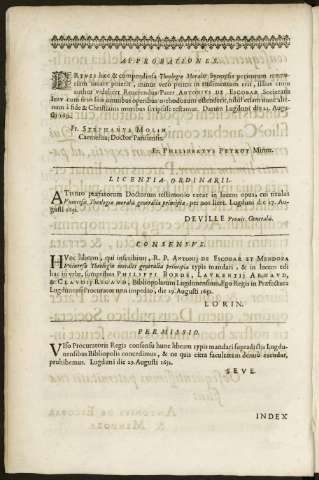 APPROBATIONES.
BREVIS hæc & compendiosa Theologiæ Moralis Synopsis
author videlicet Reverendus Pater ANTONIUS DE ESCOBAR Societatis
IESV cum suis
1651.
Fr. STEPHANVS MOLIN
Carmelita, Doctor Parisiensis.
Fr. PHILIBERTVS PETROT Minim.
LICENTIA ORDINARII.
ATtento prædictorum Doctorum testimonio
Vniversæ Theologiæ moralis generalia principia, per nos licet. Lugduni die 27. Au-
gusti 1651.
DEVILLE Generalis.
CONSENSVS.
HVnc librum, qui inscribitur, R. P. ANTONII DE ESCOBAR ET MENDOZA
Vniversæ Theologiæ moralis generalia principia typis mandari, & in lucem edi
hac in urbe, sumptibus PHILIPPI BORDE, LAVRENTII ARNAVD,
& CLAVDII RIGAVD, Bibliopolarum Lugdunensium, Ego Regis in Præfectura
Lugdunensi Procurator non impedio, die 29. Augusti 1651.
LORIN.
PERMISSIO.
VIso Procuratoris Regis consensu hunc librum typis mandari supradictis Lugdu-
nensibus Bibliopolis concedimus, & ne quis citra facultatem denuò excudat,
prohibemus. Lugduni die 29. Augusti 1651.
SEVE.
INDEX